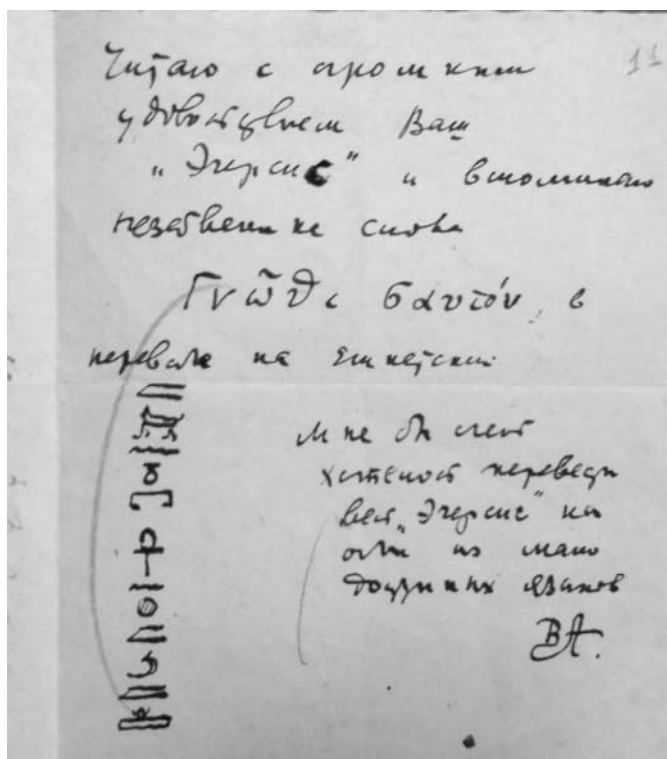 11
Читаю с огромным
удовольствием Ваш
„Эгерсис“ и вспоминаю
незабвенные слова
Γνῶθι σαυτόν, в
переводе на Египетский
Мне бы очень
хотелось перевести
весь „Эгерсис“ на
один из мало
доступных языков
ВА.